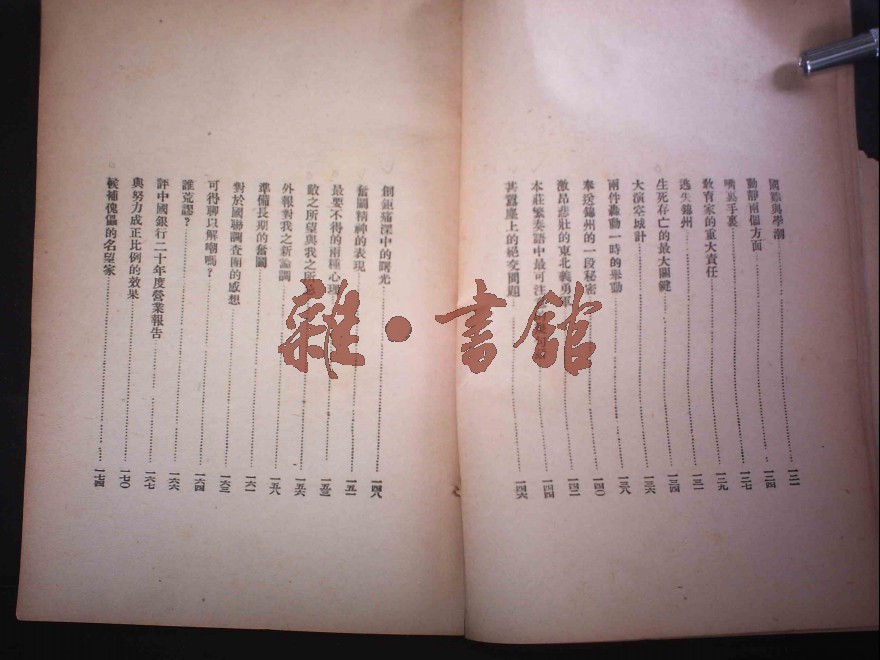 國難與學潮……一二一
動靜兩個方面……一二四
噴與手裏……一二七
敎育家的重大責任……一二九
逃失錦州……一三一
生死存亡的最大關鍵……一三四
大演空城計……一三六
兩件轟動一時的舉動……一三八
奉送錦州的一段秘密……一四〇
激昂悲壯的東北義勇軍……一四二
本莊繁奏語中最可注……一四四
甚囂塵上的絕交問題……一四六
創鉅痛深中的曙光……一四八
奮鬭精神的表現……一五一
最要不得的兩種心理……一五三
敵之所望與我之所……一五六
外報對我之新論調……一五八
準備長期的奮鬭……一六一
對於國聯調查團的感想……一六三
可得聊以解嘲嗎？……一六四
誰荒謬？……一六六
評中國銀行二十年度營業報告……一六七
與努力成正比例的效果……一七〇
候補傀儡的名望家……一七四
雜·書館